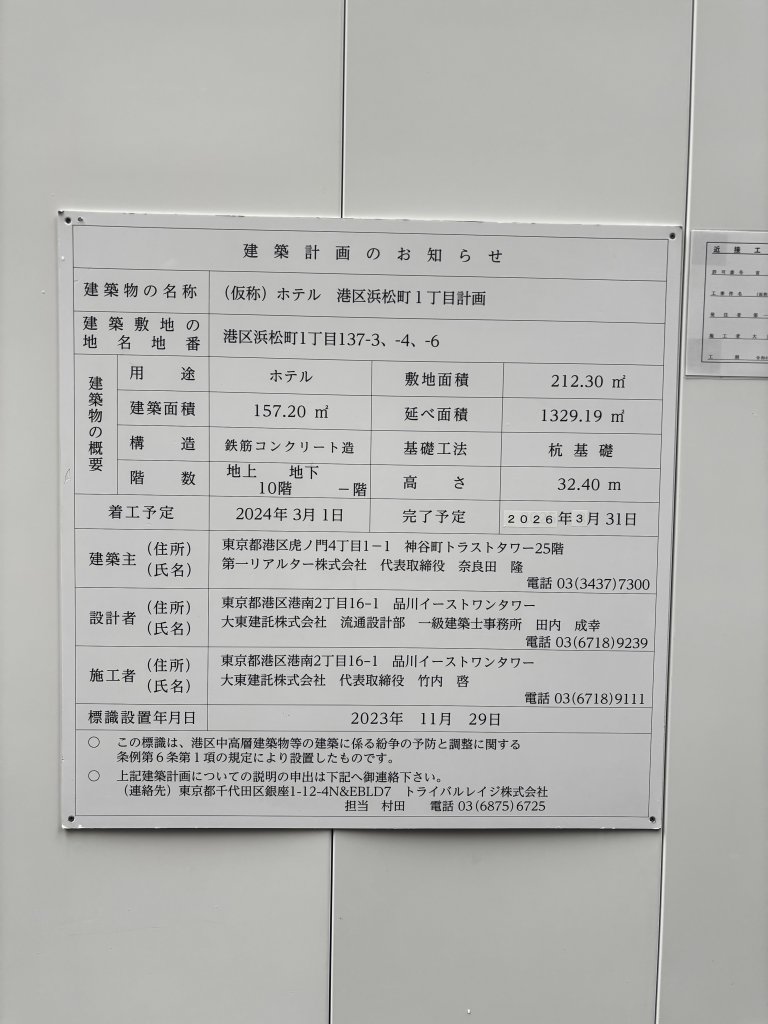 建築計画のお知らせ
建築物の名称 （仮称）ホテル 港区浜松町１丁目計画
建築敷地の地名地番 港区浜松町1丁目137-3、-4、-6
建築物の概要
用途 ホテル 敷地面積 212.30 ㎡
建築面積 157.20 ㎡ 延べ面積 1329.19 ㎡
構造 鉄筋コンクリート造 基礎工法 杭基礎
階数 地上 10階 地下 －階 高さ 32.40 m
着工予定 2024年 3月 1日 完了予定 2026年 3月 31日
建築主 （住所） 東京都港区虎ノ門4丁目1－1 神谷町トラストタワー25階
（氏名） 第一リアルター株式会社 代表取締役 奈良田 隆
電話 03(3437)7300
設計者 （住所） 東京都港区港南2丁目16-1 品川イーストワンタワー
（氏名） 大東建託株式会社 流通設計部 一級建築士事務所 田内 成幸
電話 03(6718)9239
施工者 （住所） 東京都港区港南2丁目16-1 品川イーストワンタワー
（氏名） 大東建託株式会社 代表取締役 竹内 啓
電話 03(6718)9111
標識設置年月日 2023年 11月 29日
○ この標識は、港区中高層建築物等の建築に係る紛争の予防と調整に関する
条例第６条第１項の規定により設置したものです。
○ 上記建築計画についての説明の申出は下記へ御連絡下さい。
（連絡先）東京都千代田区銀座1-12-4N&EBLD7 トライバルレイジ株式会社
担当 村田 電話 03(6875)6725
近接工